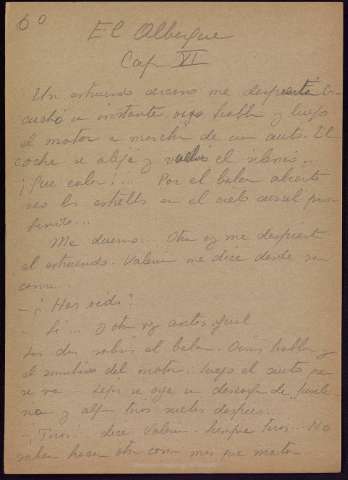 60
El Albergue
Cap. VI
Un estruendo cercano me despierta. Es-
cucho un instante, oigo hablar y luego
el motor en marcha de un auto. El
coche se aleja y vuelve el silencio...
¡Que calor!... Por el balcon abierto
veo las estrellas en el cielo azul pro-
fundo...
Me duermo... Otra vez me despierta
el estruendo. Valeria me dice desde su
cama.
- ¿Has oido?
- Si... Y otra vez antes, igual
Las dos salimos al balcon. Oimos hablar y
el zumbido del motor. Luego el auto
se va. Lejos se oye una descarga de fusile
ria y algun tiro suelto despues...
- Tiros! dice Valeria. Siempre tiros... No
saben hacer otra cosa mas que matar